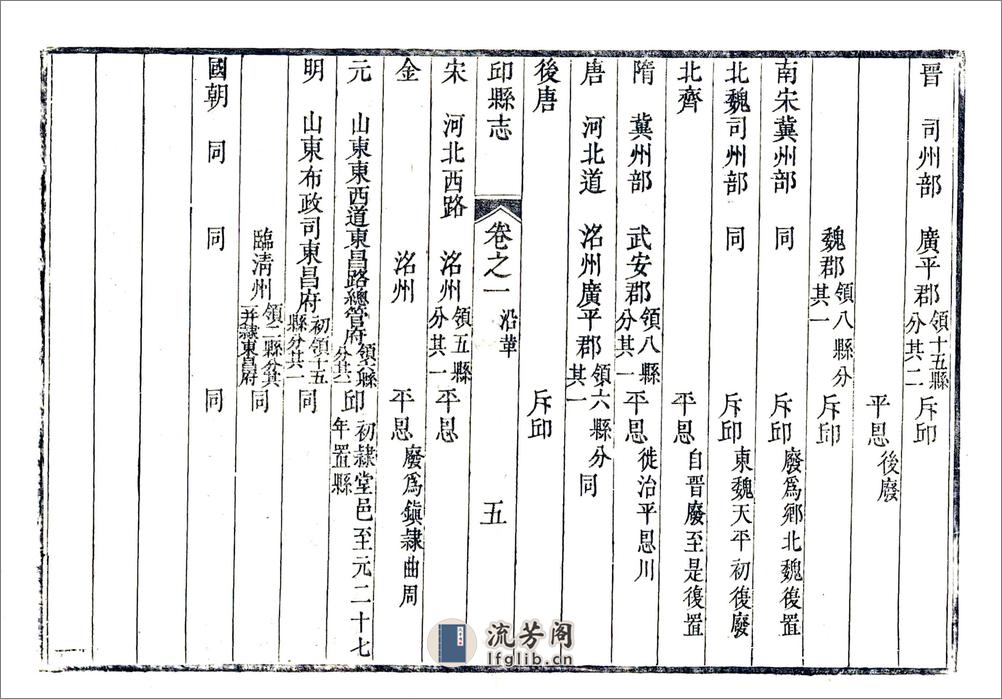 晉　司州部　廣平郡領十五縣分其二　斥邱
平恩後廢
魏郡領八縣分其一　斥邱
南宋冀州部　同　斥邱廢爲鄉北魏復置
北魏司州部　同　斥邱東魏天平初復廢
北齊　平恩自晉廢至是復置
隋　冀州部　武安郡領八縣分其一　平恩徙治平恩川
唐　河北道　洺州廣平郡領六縣分其一　同
後唐　斥邱
邱縣志　卷之一　沿革　五
宋　河北西路　洺州領五縣分其一　平恩
金　洺州　平恩廢爲鎭隷曲周
元　山東東西道東昌路總管府領六縣分其一　邱初隷堂邑至元二十七年置縣
明　山東布政司東昌府初領十五縣分其一　同
臨清州領二縣分其一并隷東昌府　同
國朝　同　同　同
流芳阁
lfglib.cn